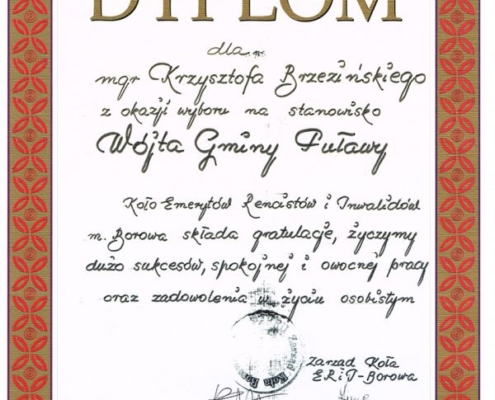 DYPLOM
dla
mgr Krzysztofa Brzezińskiego
z okazji wyboru na stanowisko
Wójta Gminy Puławy
Koło Emerytów Rencistów i Inwalidów
m. Borowa składa gratulacje, życzymy
dużo sukcesów, spokojnej i owocnej pracy
oraz zadowolenia w życiu osobistym
Zarząd Koła
ERiI-Borowa